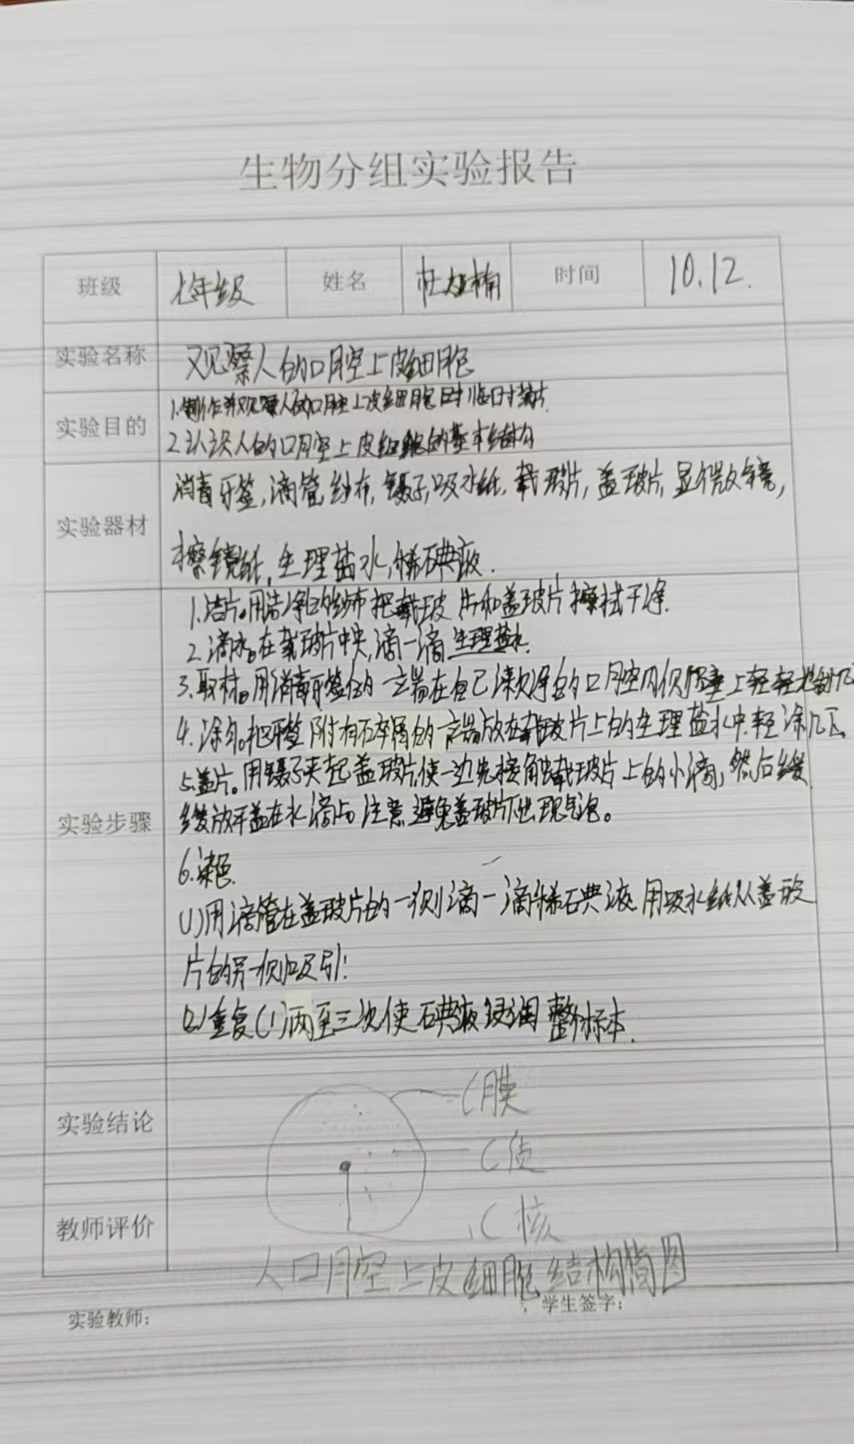 生物分组实验报告
班级 七年级 姓名 时间 10.12.
实验名称 观察人的口腔上皮细胞
实验目的 1.制作并观察人的口腔上皮细胞临时装片.
2.认识人的口腔上皮细胞的基本结构
实验器材 消毒牙签,滴管,纱布,镊子,吸水纸,载玻片,盖玻片,显微镜,
擦镜纸,生理盐水,稀碘液.
实验步骤 1.洁片。用洁净的纱布把载玻片和盖玻片擦拭干净.
2.滴水。在载玻片中央,滴一滴生理盐水.
3.取材。用消毒牙签的一端在自己漱净的口腔内侧壁上轻轻刮几
4.涂匀。把牙签附有碎屑的一端放在载玻片上的生理盐水中轻涂几下
5.盖片。用镊子夹起盖玻片,使一边先接触载玻片上的水滴,然后缓
缓放平盖在水滴上 注意避免盖玻片下出现气泡。
6.染色
(1)用滴管在盖玻片的一侧滴一滴稀碘液.用吸水纸从盖玻
片的另一侧吸引!
(2)重复(1)两至三次使碘液浸润整个标本.
实验结论 C膜
C质
教师评价 C核
人口腔上皮细胞结构简图
实验教师: 学生签字: